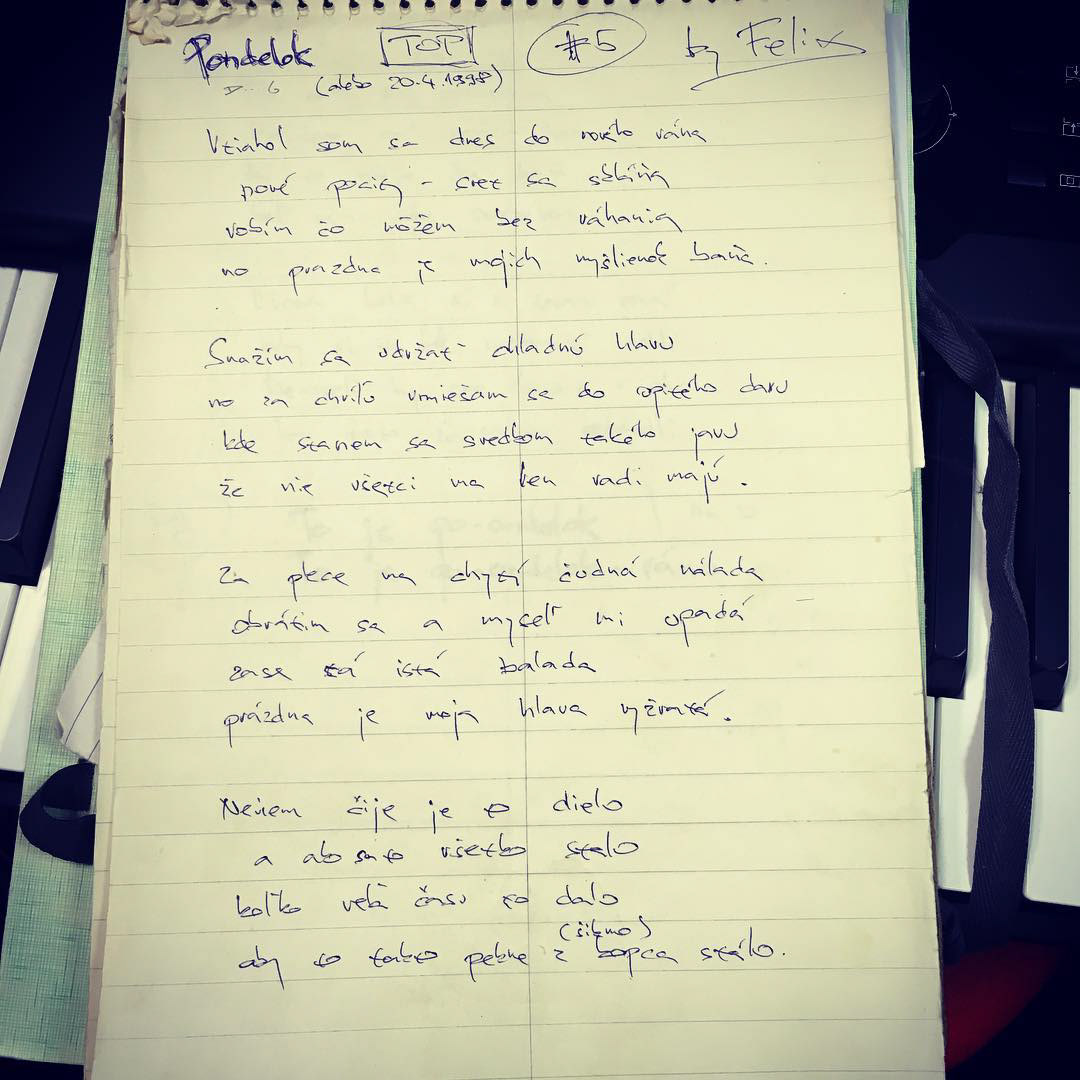 Pondelok TOP #5 by Felix
(alebo 20.4.1998)
Vtiahol som sa dnes do nového rána
nové pocity - svet sa sklána
robím čo môžem bez váhania
no prazdna je mojich myšlienok baňa.
Snažím sa udržať chladnú hlavu
no za chvíľu vmiešam sa do opitého davu
kde stanem sa svedkom takého javu
že nie všetci ma len radi majú.
Za plece ma chytí čudná nálada
obrátim sa a myseľ mi upadá
zase tá istá balada
prázdna je moja hlava vyžratá.
Neviem čije je to dielo
a ako sa to všetko stalo
koľko veľa času to dalo
(šikmo)
aby to takto pekne z kopca stálo.